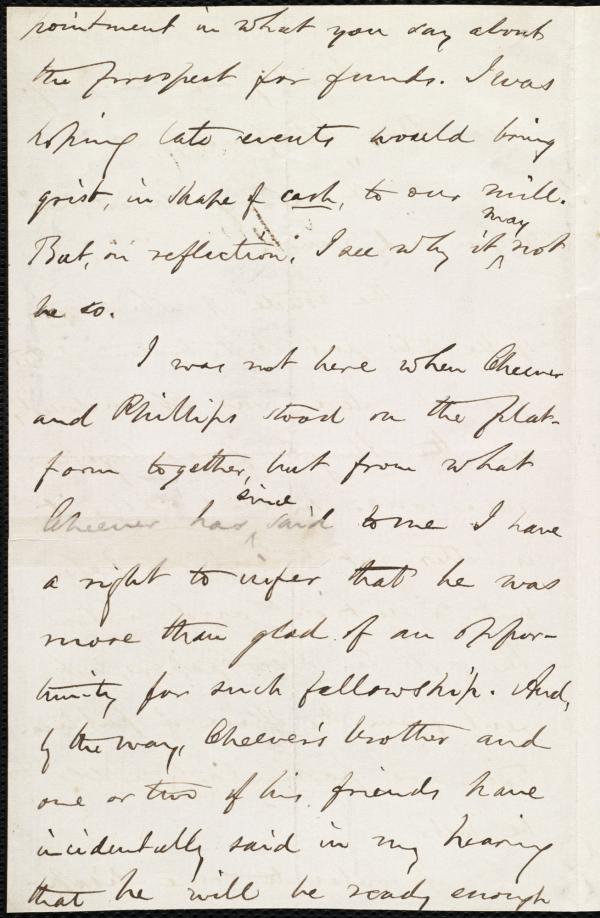 pointment in what you say about
the prospect for funds. I was
hoping late events would bring
grist, in shape of cash, to our mill.
But, on reflection, I see why it may not
be so.
I was not here when Cheever
and Phillips stood on the plat-
form together, but from what
Cheever has since said to me I have
a right to infer that he was
more than glad of an oppor-
tunity for such fellowship. And,
by the way, Cheever's brother and
one or two of his friends have
incidentally said in my hearing
that he will be ready enough